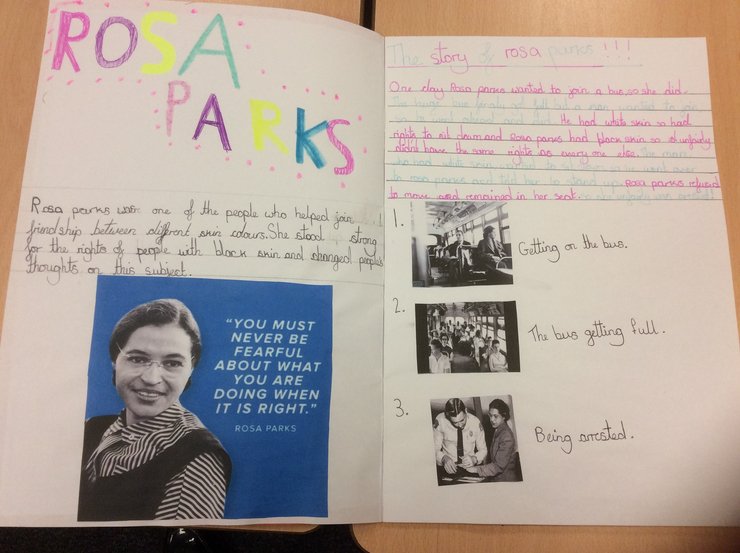 ROSA
PARKS
Rosa parks was one of the people who helped join
friendship between different skin colours. She stood strong
for the rights of people with black skin and changed people's
thoughts on this subject.
"YOU MUST
NEVER BE
FEARFUL
ABOUT WHAT
YOU ARE
DOING WHEN
IT IS RIGHT."
ROSA PARKS
The story of rosa parks!!!
One day Rosa parks wanted to join a bus, so she did.
The bus full but a man wanted to join
so he went ahead and did. He had white skin so had
rights to sit down and Rosa parks had black skin so unfairly
didn't have the same rights as every one else. The man
who had white skin so he went over
to rosa parks and told her to stand up. Rosa parks refused
to move and remained in her seat. so she
1.
Getting on the bus.
2.
The bus getting full.
3.
Being arrested.